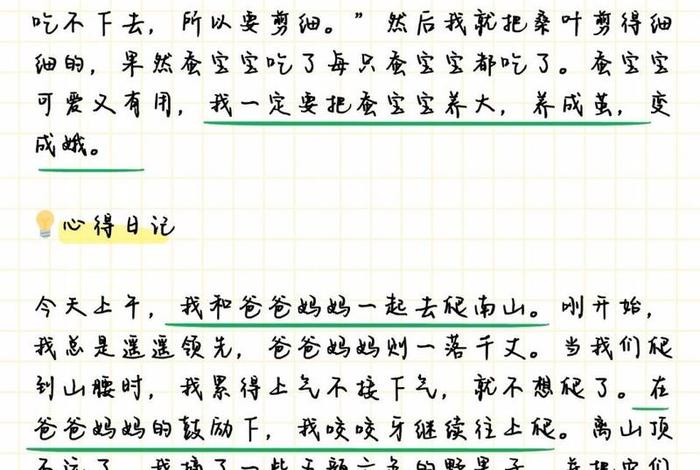 吃不下去，所以要剪细。”然后我就把桑叶剪得细
细的，果然蚕宝宝吃了每只蚕宝宝都吃了。蚕宝宝
可爱又有用，我一定要把蚕宝宝养大，养成茧，变
成娥。
心得日记
今天上午，我和爸爸妈妈一起去爬南山。刚开始，
我总是遥遥领先，爸爸妈妈则一落千丈。当我们爬
到山腰时，我累得上气不接下气，就不想爬了。在
爸爸妈妈的鼓励下，我咬咬牙继续往上爬。离山顶
不远了，我摘了一些五颜六色的野果子，并把它们